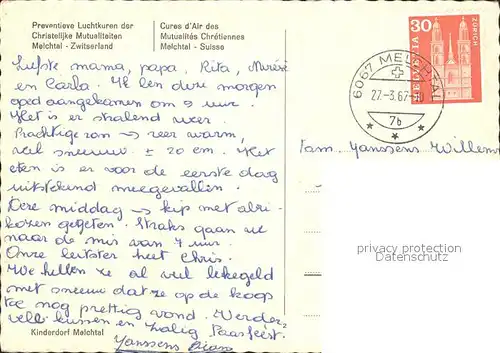 Preventieve Luchtkuren der
Christelijke Mutualiteiten
Melchtal - Zwitserland
Cures d'Air des
Mutualités Chrétiennes
Melchtal - Suisse
30
HELVETIA
ZÜRICH
6067 MELCHTAL
27.-3.67-18
7b
Liefste mama, papa, Rita,
en Carla. Ik ben deze morgen
goed aangekomen om 9 uur.
Het is er stralend weer.
Prachtige zon → zeer warm,
veel sneeuw ± 20 cm. Het
eten is er voor de eerste dag
uitstekend meegevallen.
Deze middag → kip met abri-
kozen gegeten. Straks gaan we
naar de mis van 7 uur.
Onze leidster heet Chris.
We hebben ze al veel
met sneeuw dat ze op de koop
toe nog prettig vond. Verder,
vele kussen en Zalig Paasfeest.
Janssens
Fam. Janssens Willems
Kinderdorf Melchtal
privacy protection
Datenschutz